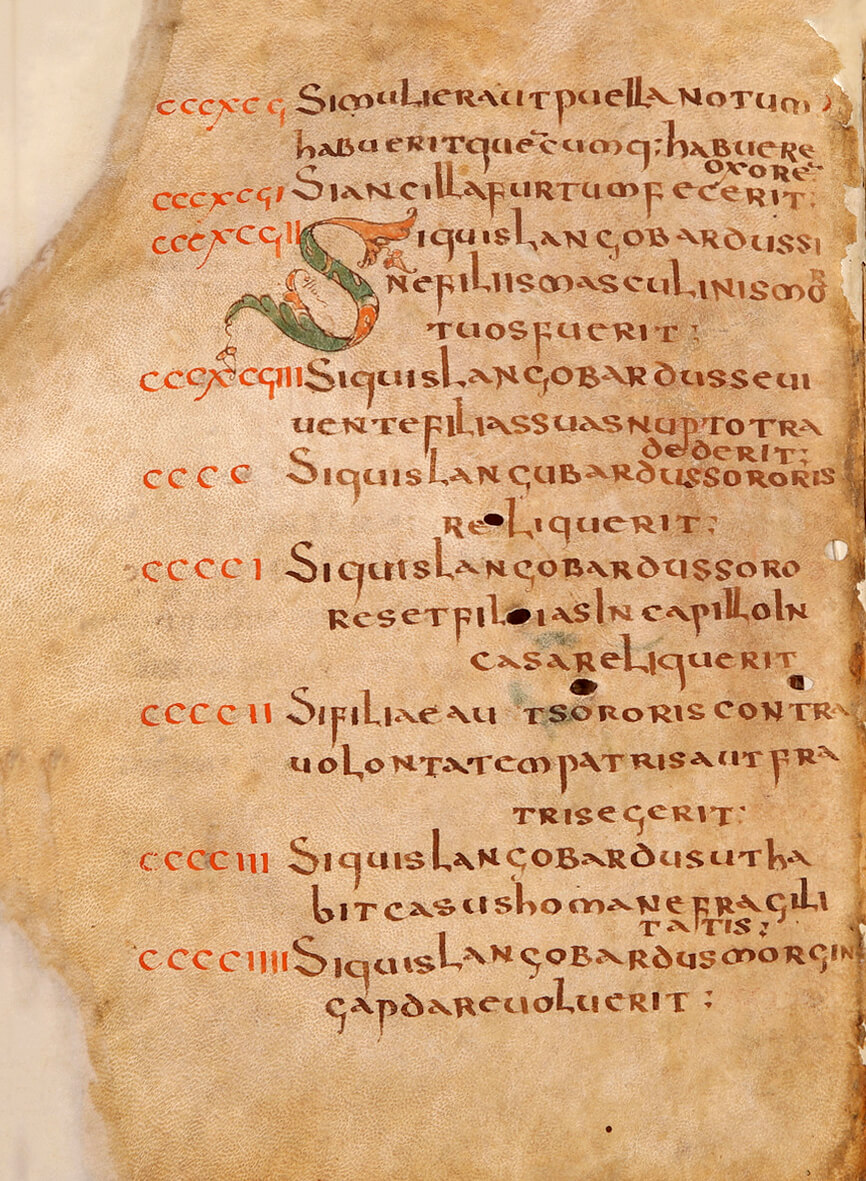 cccxcς Simulieraut puella notum
habuerit quecumq; habuere
oxore
cccxcςI Si ancilla furtum fecerit;
cccxcςII Si quis langobardus si
ne filiis masculinis mor
tuos fuerit;
cccxcςIII Si quis langobardus se ui
uente filias suas nupto tra
dederit;
cccc Si quis langubardus sororis
reliquerit;
ccccI Si quis langobardus soro
res et filias in capillo in
casa reliquerit
ccccII Si filiae aut sororis contra
uolontatem patris aut fra
tris egerit;
ccccIII Si quis langobardus ut ha
bit casus homane fragili
tatis;
ccccIIII Si quis langobardus morgin
gap dare uoluerit;